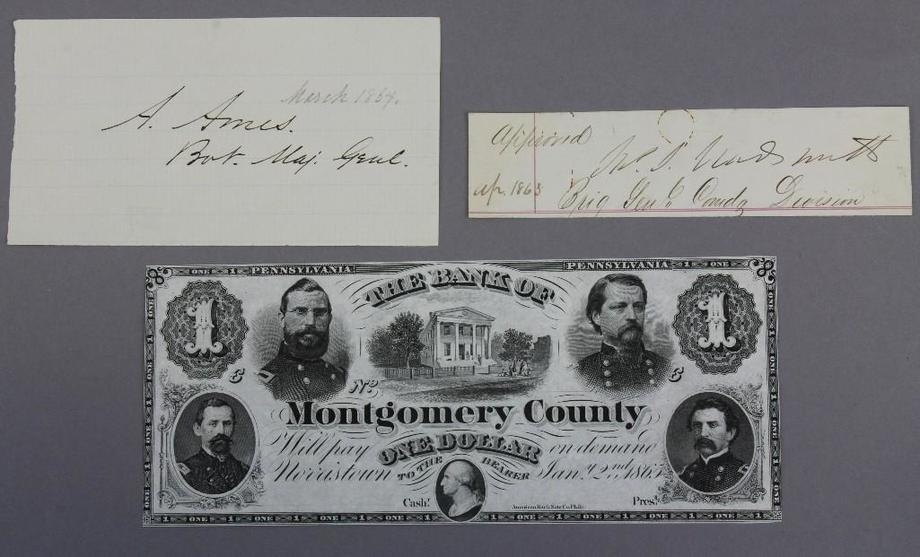 March 1864.
A. Ames.
Bvt. Maj. Genl.
Approved
Apr. 1863
Brig Gen'l Comdg Division
ONE 1 PENNSYLVANIA
PENNSYLVANIA 1 ONE
THE BANK OF
1
1
No.
Montgomery County
Will pay ONE DOLLAR on demand
Norristown TO THE BEARER Jany. 2nd. 1865
Cashr.
Prest.
American Bank Note Co. Phila.
1 ONE 1 ONE 1 ONE